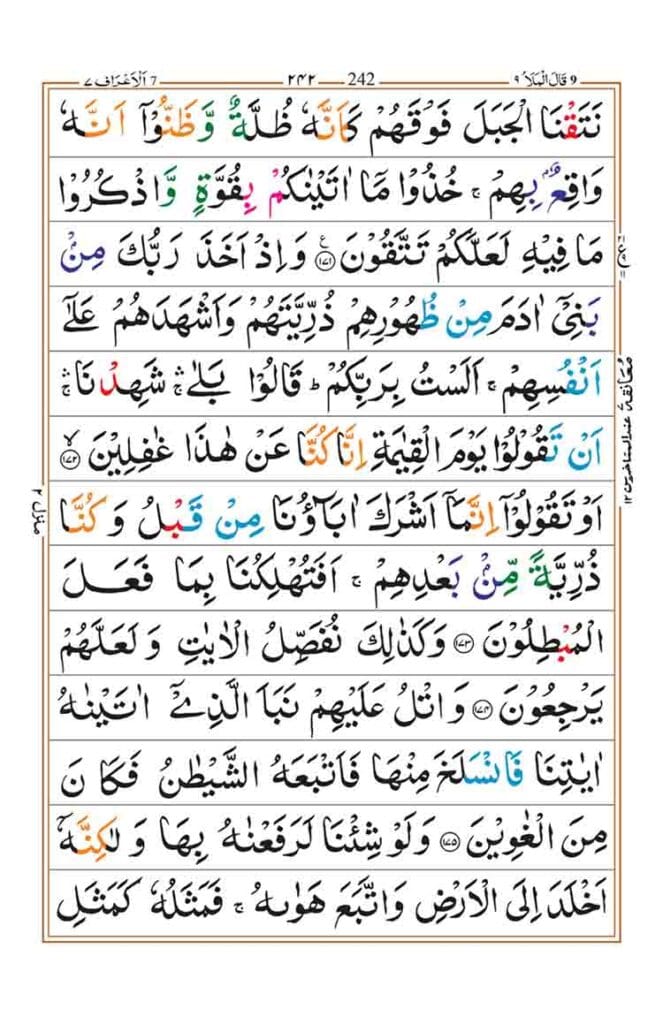 قَالَ الْمَلَاُ ٩ 9 242 ٢٤٢ 7 اَلْاَعْرَاف ٧
نَتَقْنَا الْجَبَلَ فَوْقَهُمْ كَاَنَّهٗ ظُلَّةٌ وَّظَنُّوْۤا اَنَّهٗ
وَاقِعٌۢ بِهِمْ ۚ خُذُوْا مَاۤ اٰتَيْنٰكُمْ بِقُوَّةٍ وَّاذْكُرُوْا
مَا فِيْهِ لَعَلَّكُمْ تَتَّقُوْنَ ﴿۱۷۱﴾ وَاِذْ اَخَذَ رَبُّكَ مِنْۢ
بَنِيْۤ اٰدَمَ مِنْ ظُهُوْرِهِمْ ذُرِّيَّتَهُمْ وَاَشْهَدَهُمْ عَلٰۤى
اَنْفُسِهِمْ ۚ اَلَسْتُ بِرَبِّكُمْ ؕ قَالُوْا بَلٰى ۛۚ شَهِدْنَا ۛۚ
اَنْ تَقُوْلُوْا يَوْمَ الْقِيٰمَةِ اِنَّا كُنَّا عَنْ هٰذَا غٰفِلِيْنَ ﴿۱۷۲﴾ۙ
اَوْ تَقُوْلُوْۤا اِنَّمَاۤ اَشْرَكَ اٰبَآؤُنَا مِنْ قَبْلُ وَ كُنَّا
ذُرِّيَّةً مِّنْۢ بَعْدِهِمْ ۚ اَفَتُهْلِكُنَا بِمَا فَعَلَ
الْمُبْطِلُوْنَ ﴿۱۷۳﴾ وَكَذٰلِكَ نُفَصِّلُ الْاٰيٰتِ وَ لَعَلَّهُمْ
يَرْجِعُوْنَ ﴿۱۷۴﴾ وَ اتْلُ عَلَيْهِمْ نَبَاَ الَّذِيْۤ اٰتَيْنٰهُ
اٰيٰتِنَا فَانْسَلَخَ مِنْهَا فَاَتْبَعَهُ الشَّيْطٰنُ فَكَانَ
مِنَ الْغٰوِيْنَ ﴿۱۷۵﴾ وَلَوْ شِئْنَا لَرَفَعْنٰهُ بِهَا وَ لٰكِنَّهٗۤ
اَخْلَدَ اِلَى الْاَرْضِ وَاتَّبَعَ هَوٰىهُ ۚ فَمَثَلُهٗ كَمَثَلِ
معانقة
منزل ٢